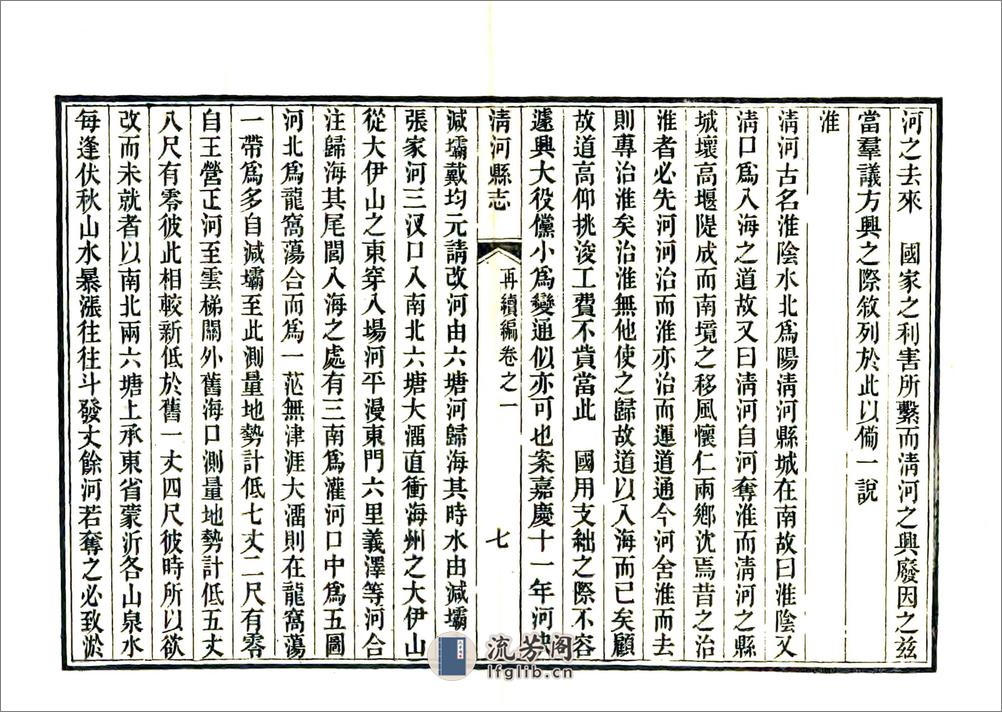 河之去來　國家之利害所繫而清河之興廢因之茲
當羣議方興之際敘列於此以備一說
淮
清河古名淮陰水北爲陽清河縣城在南故曰淮陰又
清口爲入海之道故又曰清河自河奪淮而清河之縣
城壞高堰隄成而南境之移風懷仁兩鄉沈焉昔之治
淮者必先河河治而淮亦治而運道通今河舍淮而去
則專治淮矣治淮無他使之歸故道以入海而已矣顧
故道高仰挑浚工費不貲當此　國用支絀之際不容
遽興大役儻小爲變通似亦可也案嘉慶十一年河決
清河縣志
再續編卷之一
七
減壩戴均元請改河由六塘河歸海其時水由減壩
張家河三汊口入南北六塘大溜直衝海州之大伊山
從大伊山之東穿入場河平漫東門六里義澤等河合
注歸海其尾閭入海之處有三南爲灌河口中爲五圖
河北爲龍窩蕩合而爲一茫無津涯大溜則在龍窩蕩
一帶爲多自減壩至此測量地勢計低七丈二尺有零
自王營正河至雲梯關外舊海口測量地勢計低五丈
八尺有零彼此相較新低於舊一丈四尺彼時所以欲
改而未就者以南北兩六塘上承東省蒙沂各山泉水
每逢伏秋山水暴漲往往斗發丈餘河若奪之必致淤
流芳阁
lfglib.cn